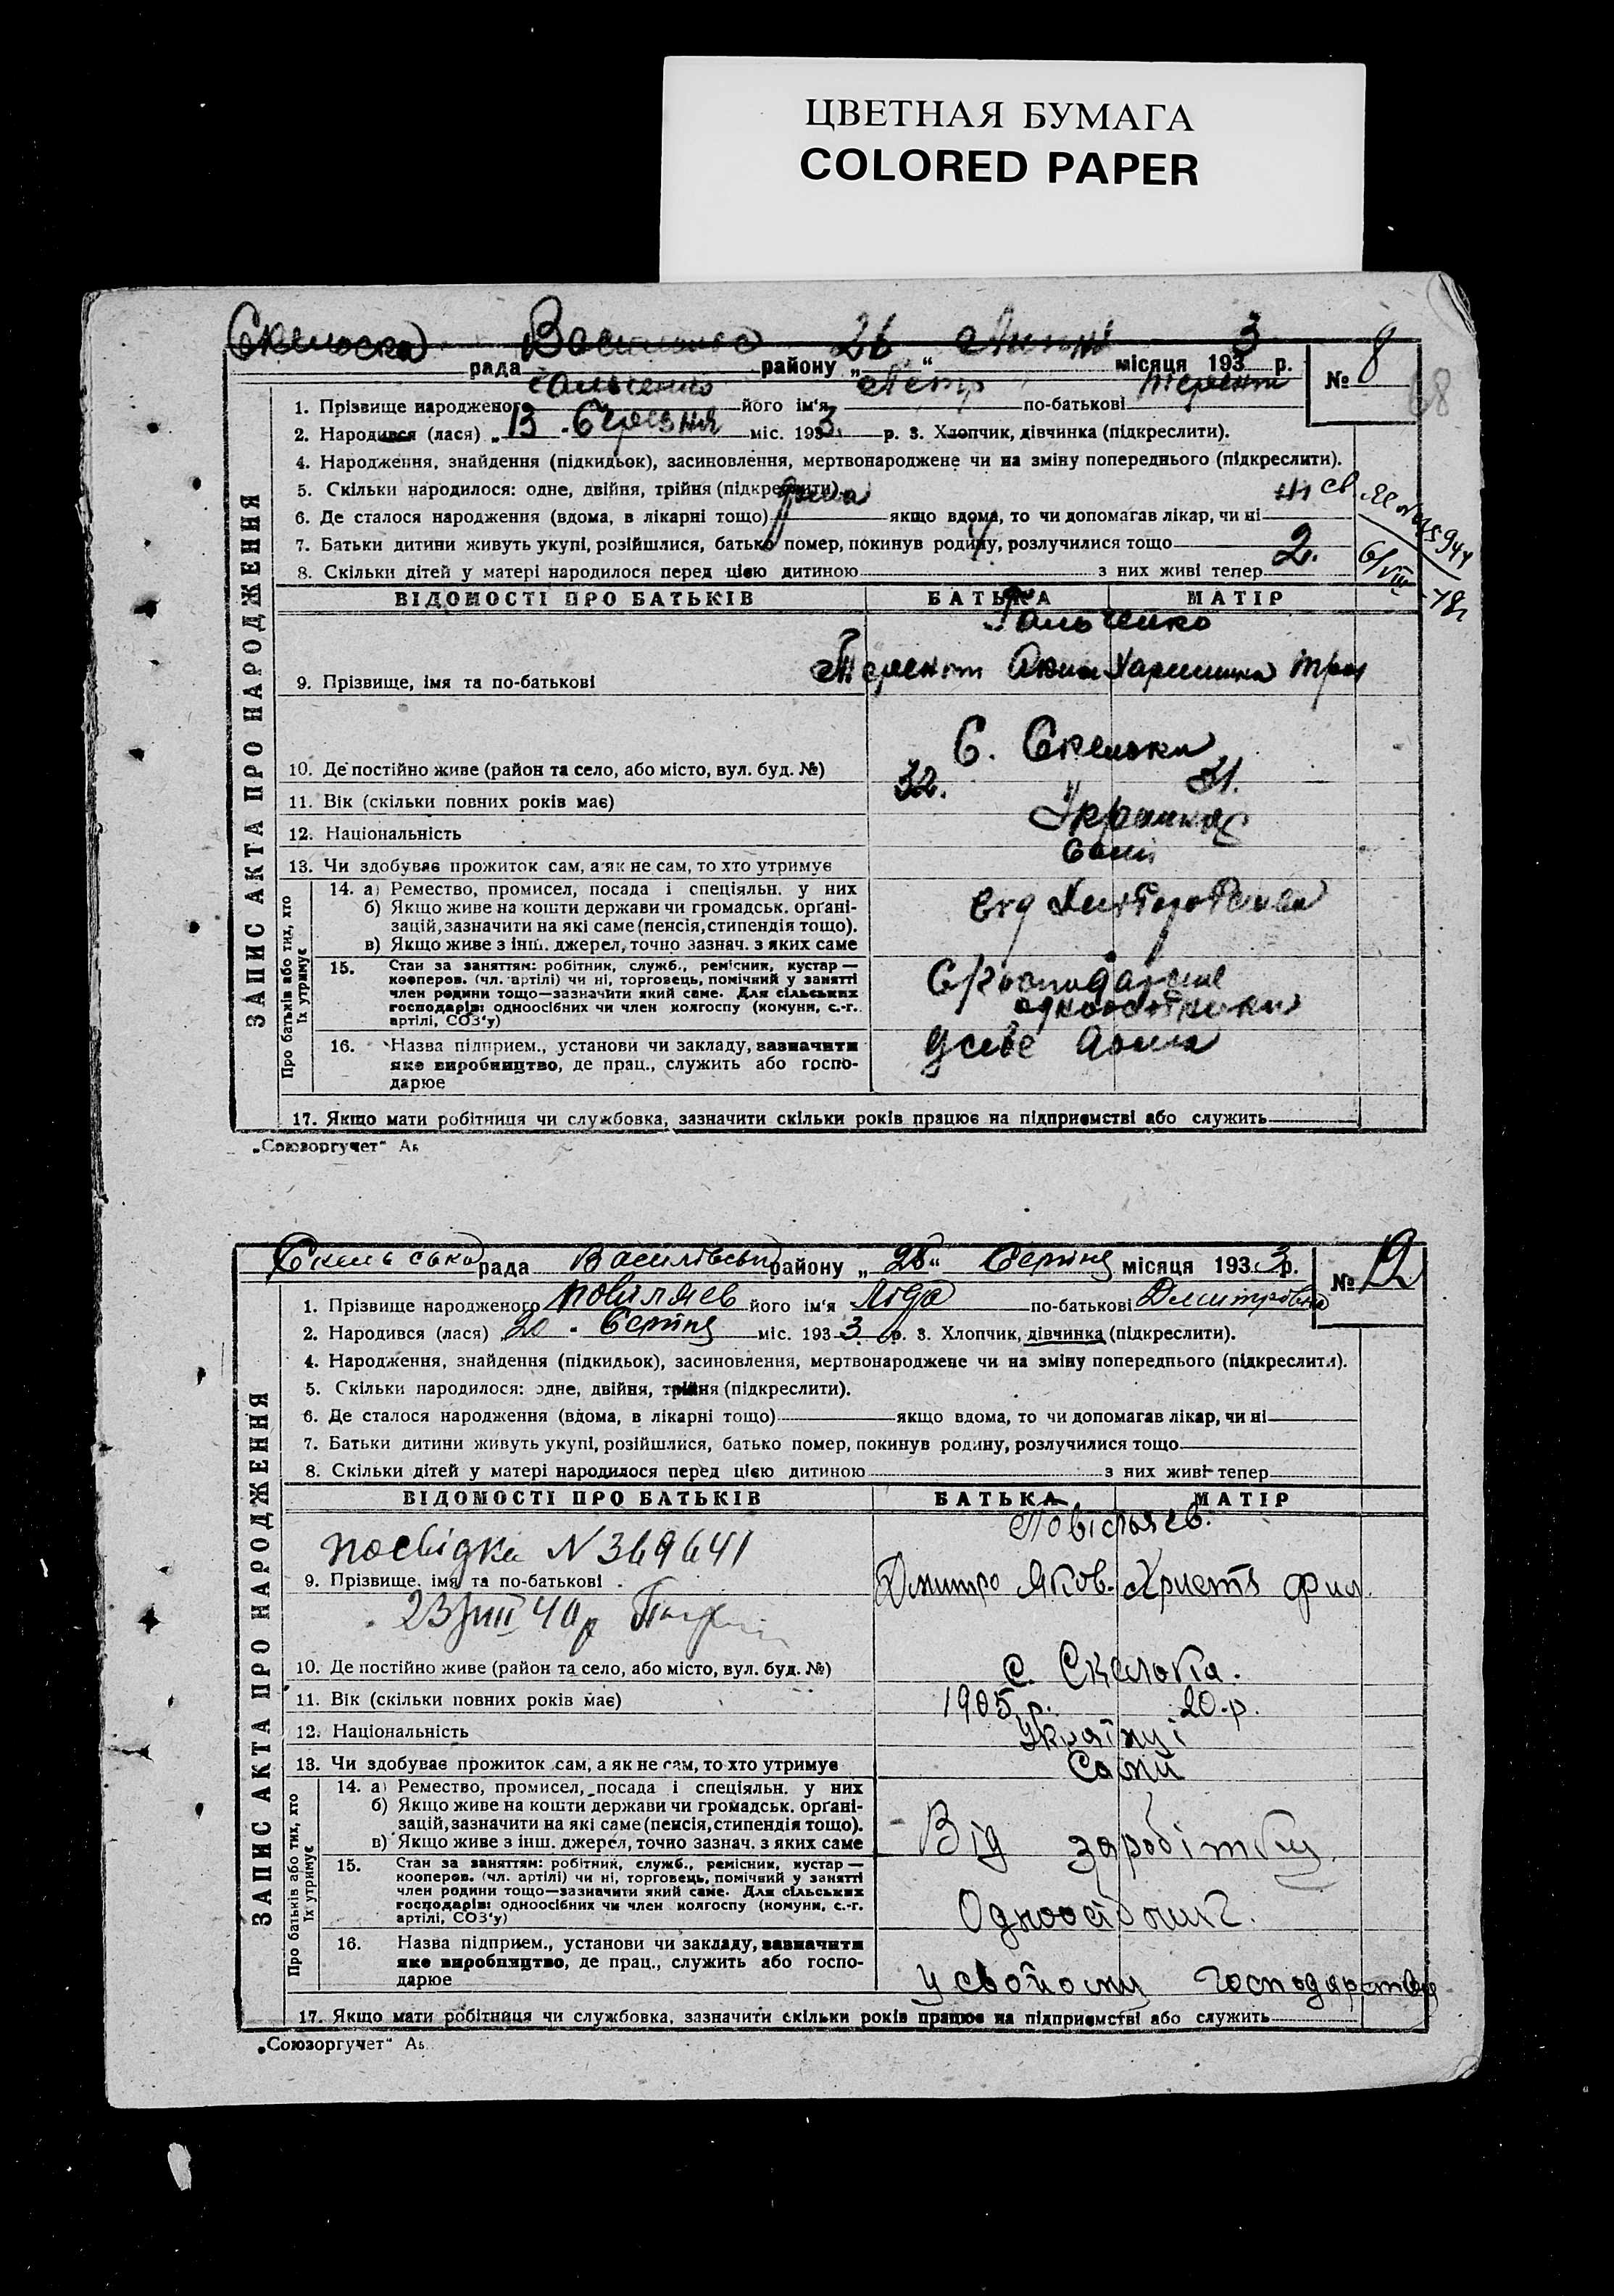 ЦВЕТНАЯ БУМАГА
COLORED PAPER
рада района „26“ місяця 1933 р. № 8
68
1. Прізвище народженого його ім'я Петр по-батькові Терент
2. Народився (лася) „13. Березня міс. 1933 р. 3. Хлопчик, дівчинка (підкреслити).
4. Народження, знайдення (підкидьок), засиновлення, мертвонароджене чи на зміну попереднього (підкреслити).
5. Скільки народилося: одне, двійня, трійня (підкреслити)
6. Де сталося народження (вдома, в лікарні тощо) дома якщо вдома, то чи допомагав лікар, чи ні ні
7. Батьки дитини живуть укупі, розійшлися, батько помер, покинув родину, розлучилися тощо
8. Скільки дітей у матері народилося перед цією дитиною з них живі тепер 2.
ЗАПИС АКТА ПРО НАРОДЖЕННЯ
ВІДОМОСТІ ПРО БАТЬКІВ БАТЬКА МАТІР
Гальченко
9. Прізвище, імя та по-батькові Терент
С. Скельки
10. Де постійно живе (район та село, або місто, вул. буд. №)
11. Вік (скільки повних років має) 32. 31.
12. Національність
13. Чи здобуває прожиток сам, а як не сам, то хто утримує Сами
Про батьків або тих, хто їх утримує
14. а) Ремество, промисел, посада і спеціяльн. у них
б) Якщо живе на кошти держави чи громадськ. органі-
зацій, зазначити на які саме (пенсія, стипендія тощо).
в) Якщо живе з інш. джерел, точно зазнач. з яких саме
15. Стан за заняттям: робітник, служб., ремісник, кустар —
кооперов. (чл. артілі) чи ні, торговець, помічний у занятті
член родини тощо—зазначити який саме. Для сільських
господарів: одноосібних чи член колгоспу (комуни, с.-г.
артілі, СОЗ'у)
16. Назва підприєм., установи чи закладу, зазначити
яке виробництво, де прац., служить або госпо-
дарює
у себе дома
17. Якщо мати робітниця чи службовка, зазначити скільки років працює на підприємстві або служить
„Союзоргучет“
Скельська рада Василівський району „26“ Серпня місяця 1933 р. № 9
1. Прізвище народженого Повіляєв його ім'я Ліда по-батькові Дмитрівна
2. Народився (лася) 20. Серпня міс. 1933 р. 3. Хлопчик, дівчинка (підкреслити).
4. Народження, знайдення (підкидьок), засиновлення, мертвонароджене чи на зміну попереднього (підкреслити).
5. Скільки народилося: одне, двійня, трійня (підкреслити).
6. Де сталося народження (вдома, в лікарні тощо) якщо вдома, то чи допомагав лікар, чи ні
7. Батьки дитини живуть укупі, розійшлися, батько помер, покинув родину, розлучилися тощо
8. Скільки дітей у матері народилося перед цією дитиною з них живі тепер
ЗАПИС АКТА ПРО НАРОДЖЕННЯ
ВІДОМОСТІ ПРО БАТЬКІВ БАТЬКА МАТІР
посвідка N 369641
9. Прізвище, імя та по-батькові Дмитро Яков. Христя Фил.
23/VIII 40р
с. Скельки.
10. Де постійно живе (район та село, або місто, вул. буд. №)
11. Вік (скільки повних років має) 1905 р. 20.р.
12. Національність Українці
13. Чи здобуває прожиток сам, а як не сам, то хто утримує Сами
Про батьків або тих, хто їх утримує
14. а) Ремество, промисел, посада і спеціяльн. у них
б) Якщо живе на кошти держави чи громадськ. органі-
зацій, зазначити на які саме (пенсія, стипендія тощо).
в) Якщо живе з інш. джерел, точно зазнач. з яких саме
Від заробітку
15. Стан за заняттям: робітник, служб., ремісник, кустар —
кооперов. (чл. артілі) чи ні, торговець, помічний у занятті
член родини тощо—зазначити який саме. Для сільських
господарів: одноосібних чи член колгоспу (комуни, с.-г.
артілі, СОЗ'у)
Одноосібник.
16. Назва підприєм., установи чи закладу, зазначити
яке виробництво, де прац., служить або госпо-
дарює
у своїому господарстві
17. Якщо мати робітниця чи службовка, зазначити скільки років працює на підприємстві або служить
„Союзоргучет“